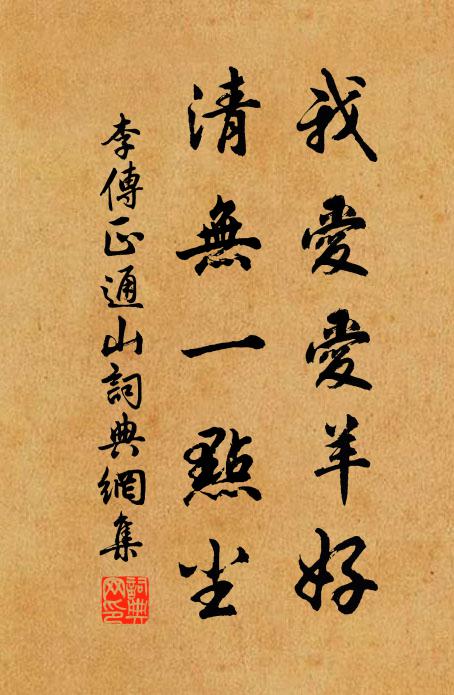 我愛愛羊好
清無一點尘
李傳正通山詞典網集
詞典
网印